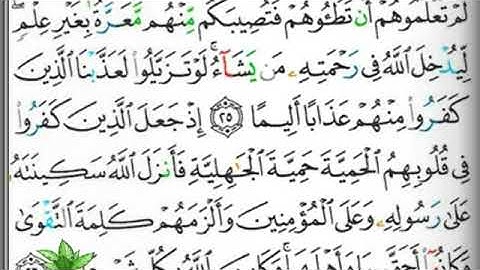 لَّمْ تَعْلَمُوهُمْ أَن تَطَـُٔوهُمْ فَتُصِيبَكُم مِّنْهُم مَّعَرَّةٌۢ بِغَيْرِ عِلْمٍۖ
لِّيُدْخِلَ ٱللَّهُ فِى رَحْمَتِهِۦ مَن يَشَآءُۚ لَوْ تَزَيَّلُوا۟ لَعَذَّبْنَا ٱلَّذِينَ
كَفَرُوا۟ مِنْهُمْ عَذَابًا أَلِيمًا ٢٥ إِذْ جَعَلَ ٱلَّذِينَ كَفَرُوا۟
فِى قُلُوبِهِمُ ٱلْحَمِيَّةَ حَمِيَّةَ ٱلْجَـٰهِلِيَّةِ فَأَنزَلَ ٱللَّهُ سَكِينَتَهُۥ
عَلَىٰ رَسُولِهِۦ وَعَلَى ٱلْمُؤْمِنِينَ وَأَلْزَمَهُمْ كَلِمَةَ ٱلتَّقْوَىٰ
وَكَانُوٓا۟ أَحَقَّ بِهَا وَأَهْلَهَاۚ وَكَانَ ٱللَّهُ بِكُلِّ شَىْءٍ